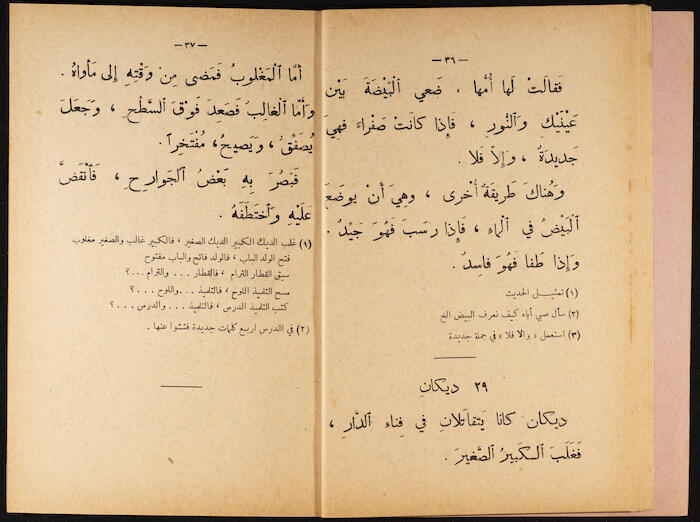 — ٣٦ —
فَقالَتْ لَها أُمُّها ، ضَعي ٱلْبَيْضَةَ بَيْنَ
عَيْنَيْكِ وَٱلنُّورِ ، فَإِذا كانَتْ صَفْراءَ فَهِيَ
جَديدَةٌ ، وَإِلاَّ فَلا .
وَهُناكَ طَريقَةٌ أُخْرى ، وَهِيَ أَنْ يوضَعَ
ٱلْبَيْضُ في ٱلْماءِ ، فَإِذا رَسَبَ فَهُوَ جَيِّدٌ .
وَإِذا طَفا فَهُوَ فاسِدٌ .
(١) تمثيل الحديث
(٢) سأل صبي أباه كيف نعرف البيض الخ
(٣) استعمل « والا فلا » في جملة جديدة
٢٩ ديكانِ
ديكان كانا يَتَقاتَلانِ في فِناءِ ٱلدَّارِ ،
فَغَلَبَ ٱلْكَبيرُ ٱلصَّغيرَ .
— ٣٧ —
أَمَّا ٱلْمَغْلوبُ فَمَضى مِنْ وَقْتِهِ إِلى مَأْواهُ .
وَأَمَّا ٱلْغالِبُ فَصَعِدَ فَوْقَ ٱلسَّطْحِ ، وَجَعَلَ
يُصَفِّقُ ، وَيَصيحُ ، مُفْتَخِراً .
فَبَصُرَ بِهِ بَعْضُ ٱلْجَوارِحِ ، فَٱنْقَضَّ
عَلَيْهِ وَٱخْتَطَفَهُ .
(١) غلب الديك الكبير الديك الصغير ، فالكبير غالب والصغير مغلوب
فتح الولد الباب ، فالولد فاتح والباب مفتوح
سبق القطار الترام ، فالقطار . . . والترام . . .؟
مسح التلميذ اللوح ، فالتلميذ . . . واللوح . . .؟
كتب التلميذ الدرس ، فالتلميذ . . . والدرس . . .؟
(٢) في الدرس اربع كلمات جديدة فتشوا عنها .